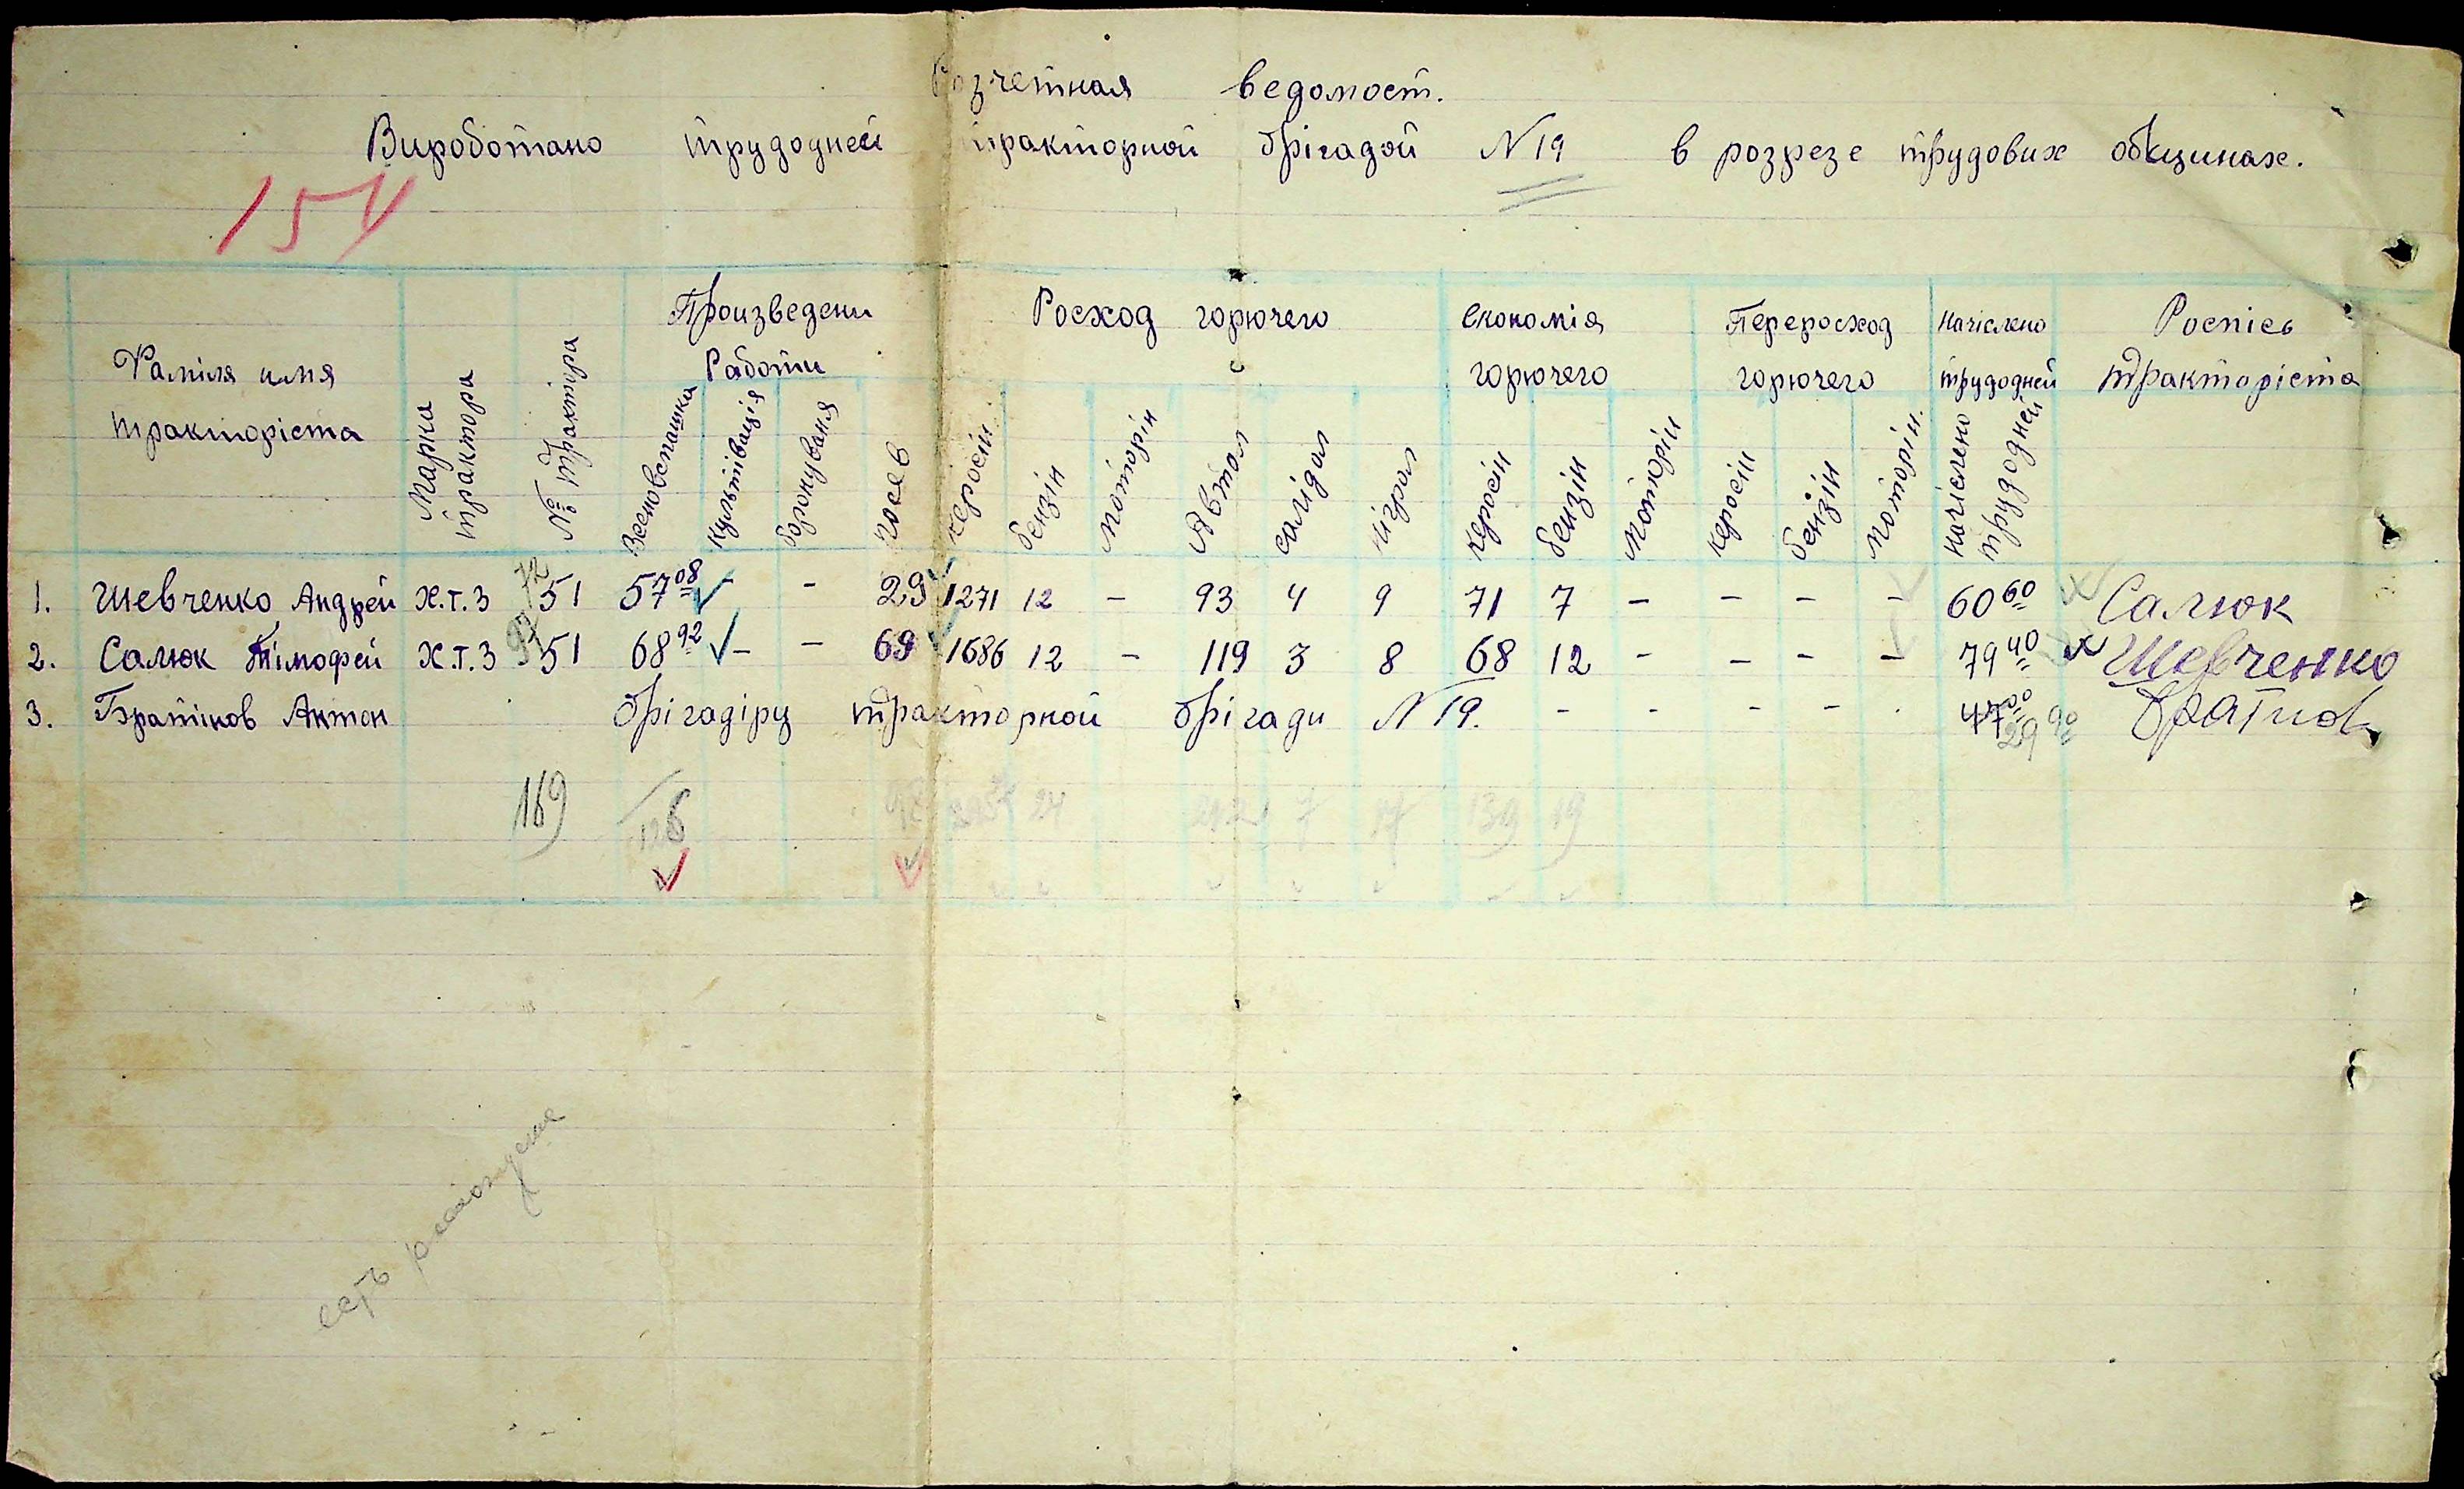 Розчетная ведомост.
Виработано трудодней тракторной брігадой N 19 в розрезе трудових общинах.
154
Фаміля имя тракторіста
Марка трактора
№№ трактора
Произведени Работи
Весновспашка
Культівація
боронуваня
посев
Росход горючего
керосін
бензін
моторін
Автол
салідол
нігрол
економія горючего
керосін
бензін
моторін
Перерасход горючего
керосін
бензін
моторін.
начіслено трудодней
начіслено трудодней
Роспісь тракторіста
1. Шевченко Андрей Х.Т.З 51 57 08 - - 29 1271 12 - 93 4 9 71 7 - - - - 60 60 Салюк
2. Салюк Тімофей Х.Т.З 51 68 92 - - 69 1686 12 - 119 3 8 68 12 - - - - 79 40 Шевченко
3. Братінов Антон брігадіру тракторной брігади N 19. - - - - 47 00
29 90
169 126 98 24 212 7 17 139 19
есть